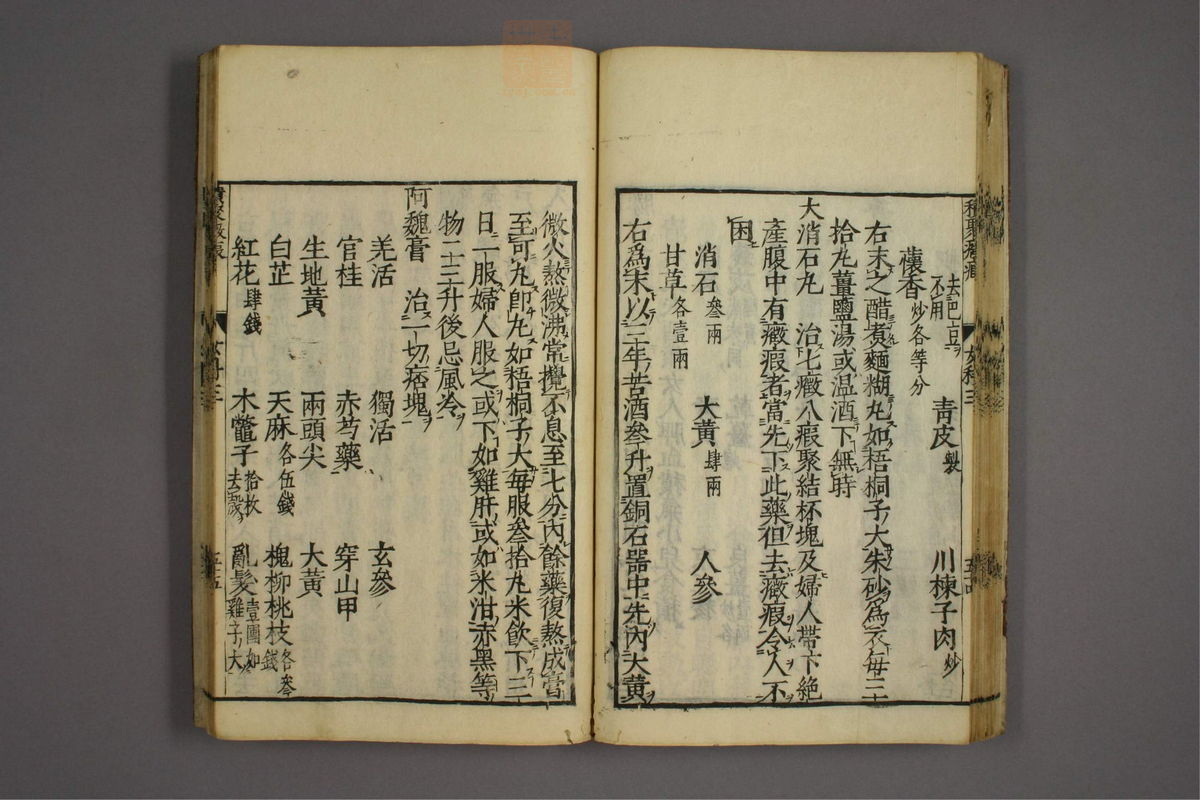 去巴豆
不用
懷香炒各等分 青皮製 川楝子肉炒
右末之醋煑麵糊丸如梧桐子大朱砂爲衣毎二
拾丸薑鹽湯或温酒下無時
大消石丸 治七癥八瘕聚結杯塊及婦人帶下絶
產腹中有癥瘕者當先下此藥但去癥瘕令人不
困
消石叄兩 大黃肆兩 人參
甘草各壹兩
右爲末以三年苦酒叄升置銅石器中先內大黃
積聚癥瘕 女科三 五十四
微火熬微沸常攪不息至七分內餘藥復熬成膏
至可丸卽丸如梧桐子大每服叄拾丸米飮下三
日一服婦人服之或下如雞肝或如米泔赤黑等
物二三升後忌風冷
阿魏膏 治一切痞塊
羌活 獨活 玄參
官桂 赤芍藥 穿山甲
生地黃 兩頭尖 大黃
白芷 天麻各伍錢 槐柳桃枝各叄錢
紅花肆錢 木鼈子拾枚去殼 亂髮壹團如雞子大
積聚癥瘕 女科三 五十五